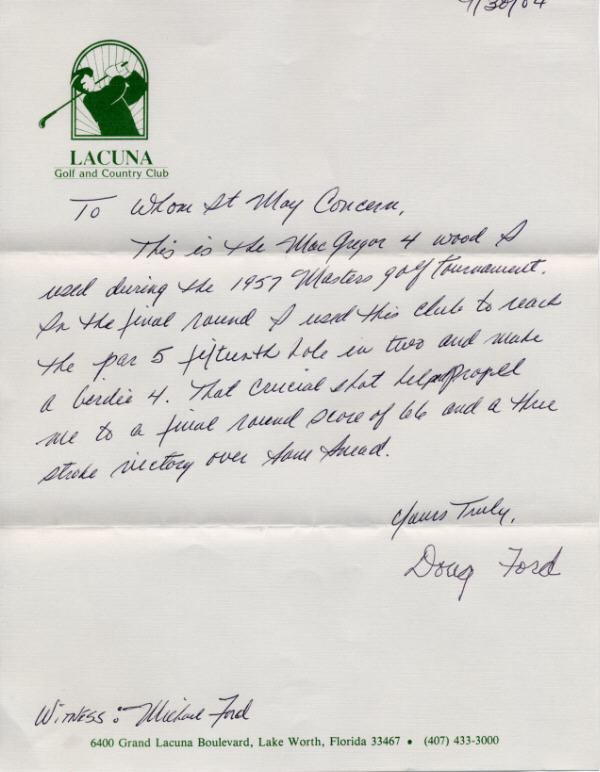 9/30/04
LACUNA
Golf and Country Club
To Whom It May Concern,
This is the MacGregor 4 wood I
used during the 1957 Masters golf tournament.
In the final round I used this club to reach
the par 5 fifteenth hole in two and make
a birdie 4. That crucial shot helped propell
me to a final round score of 66 and a three
stroke victory over Sam Snead.
Yours Truly,
Doug Ford
Witness: Michael Ford
6400 Grand Lacuna Boulevard, Lake Worth, Florida 33467 • (407) 433-3000